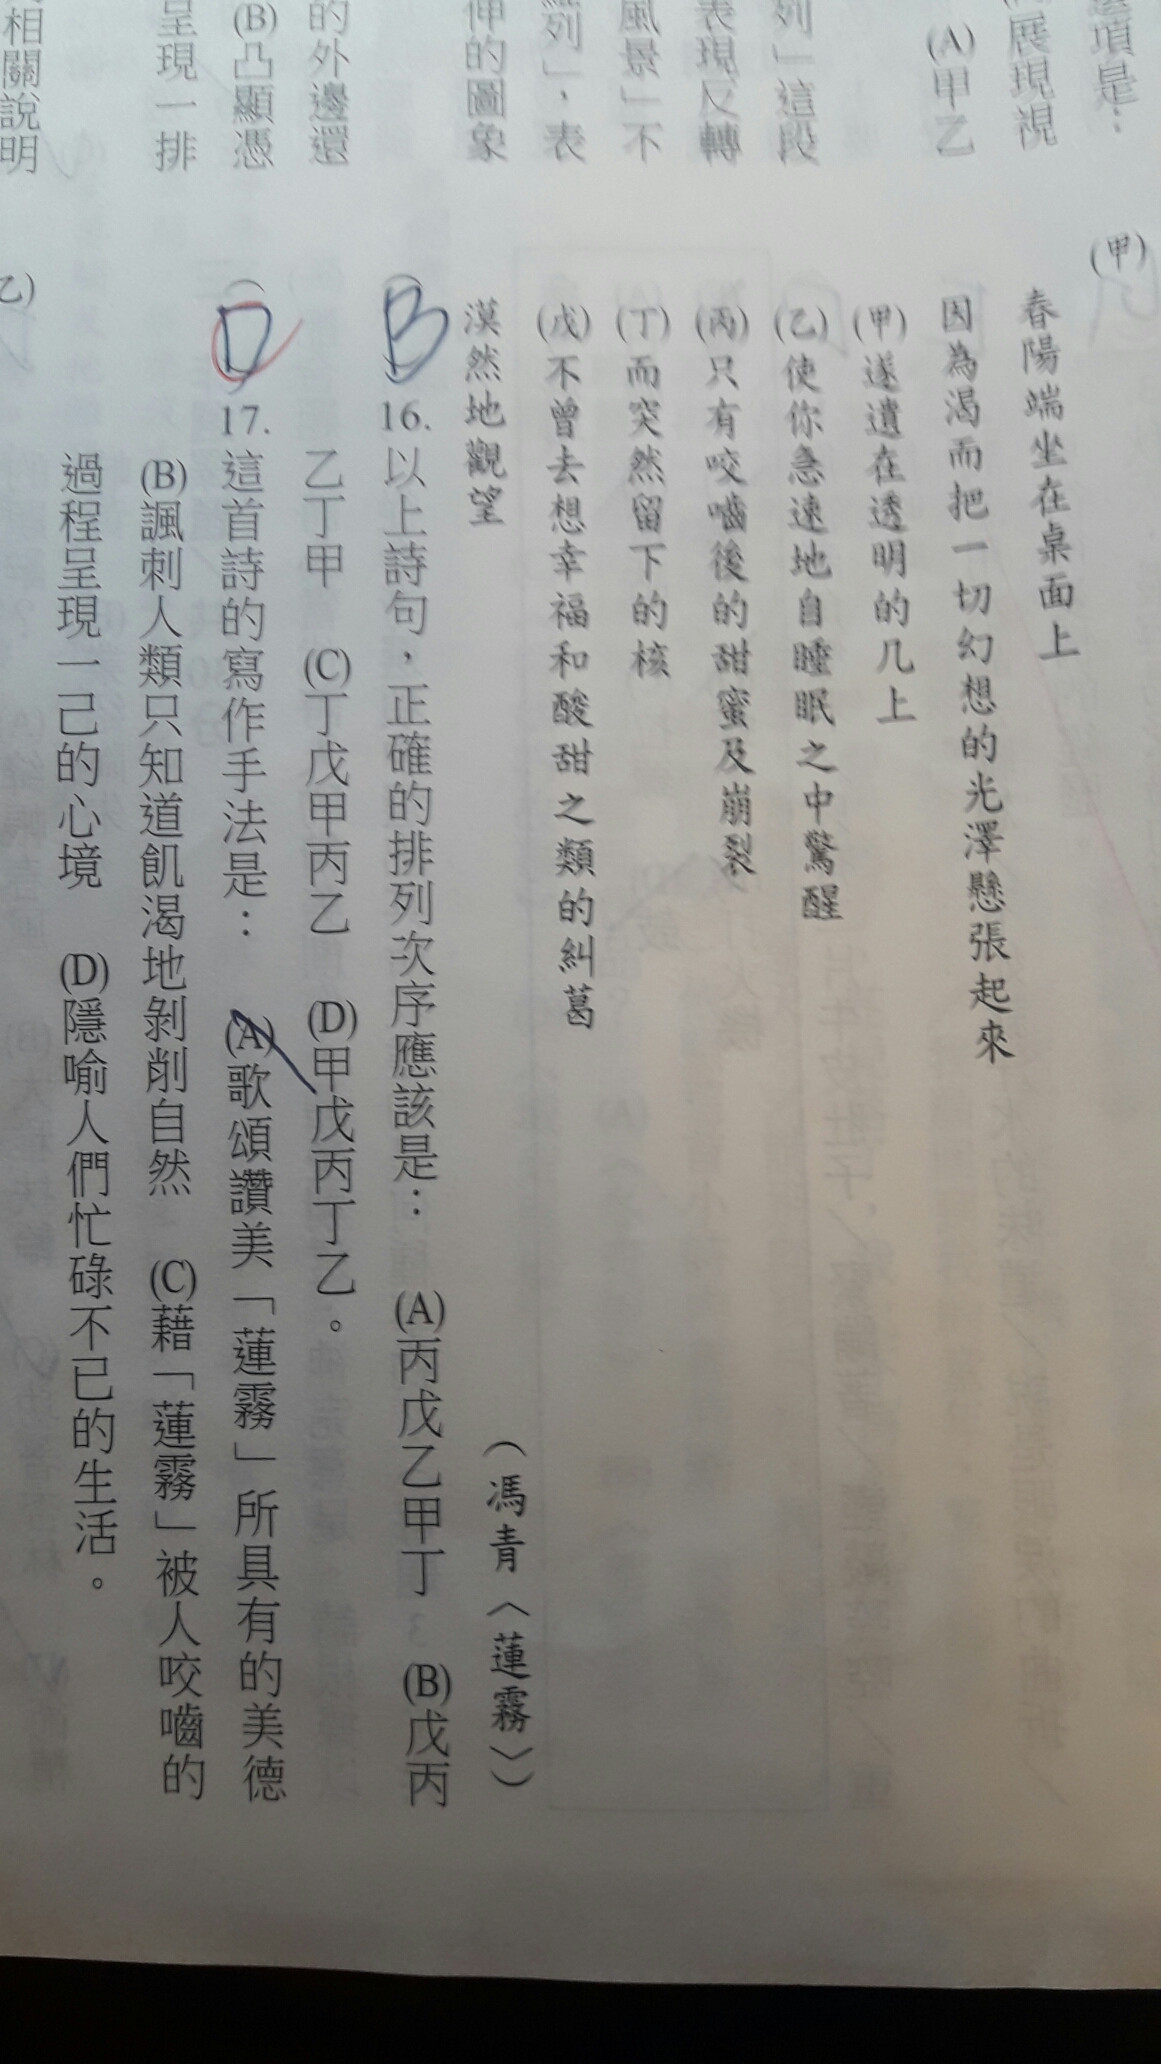 選項是：
展現視
(A)甲乙
列」這段
表現反轉
風景」不
列」，表
伸的圖象
的外邊還
(B)凸顯憑
呈現一排
相關說明
(甲)
春陽端坐在桌面上
因為渴而把一切幻想的光澤懸張起來
(甲)遂遺在透明的几上
(乙)使你急速地自睡眠之中驚醒
(丙)只有咬嚙後的甜蜜及崩裂
(丁)而突然留下的核
(戊)不曾去想幸福和酸甜之類的糾葛
漠然地觀望
（馮青〈蓮霧〉）
B
16.以上詩句，正確的排列次序應該是： (A)丙戊乙甲丁 (B)戊丙
乙丁甲 (C)丁戊甲丙乙 (D)甲戊丙丁乙。
D
17.這首詩的寫作手法是： (A)歌頌讚美「蓮霧」所具有的美德
(B)諷刺人類只知道飢渴地剝削自然 (C)藉「蓮霧」被人咬嚙的
過程呈現一己的心境 (D)隱喻人們忙碌不已的生活。
乙)